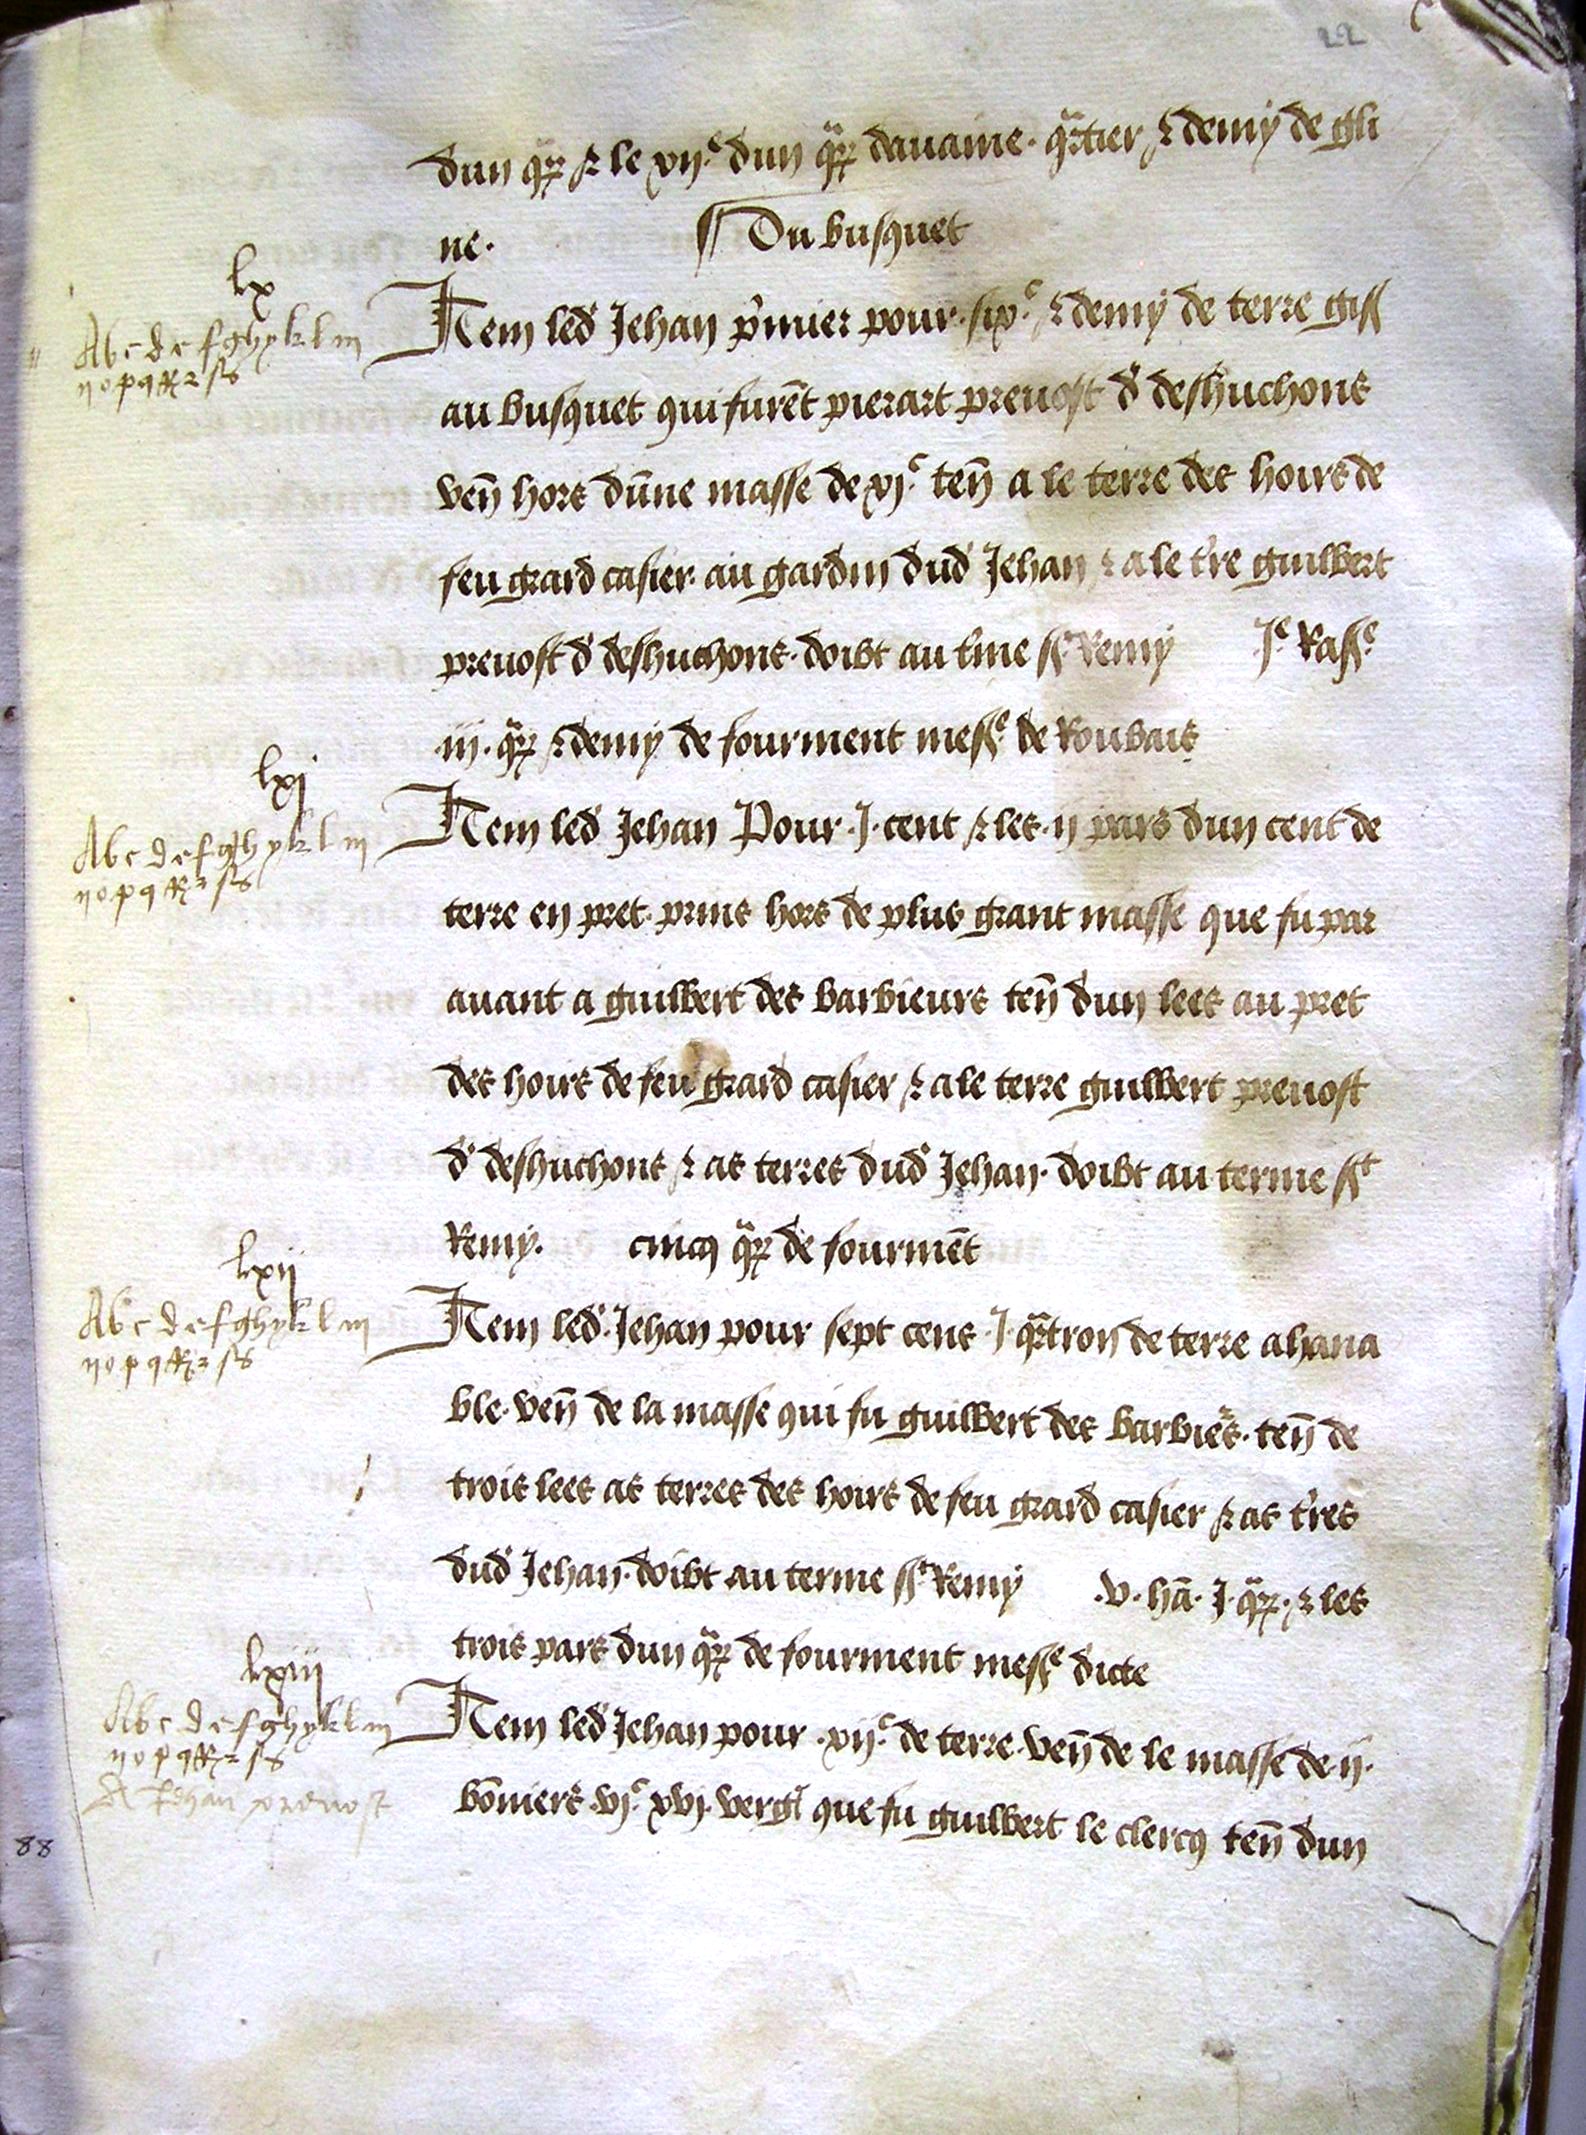 22
dun q̃rz ⁊ le xijᵉ dun q̃rz davaine · q̃rtier ⁊ demy de gli
ne · ¶ Du busquet
lx
Abcdefghyklm
nopqrsſs
Item led Jehan p̃mier pour · sixᶜ ⁊ demy de terre giſſ
au busquet qui furẽt pierart prevost d̛ deshuchons
veñ hors dũne masse de xjᶜ teñ a le terre des hoirs de
feu grard casier au gardin dud Jehan ⁊ a le t̛re guilbert
prevost d̛ deshuchons · doibt au t̛me sᵗ Remy Jᵉ Rasſᵉ
iij · q̃rz ⁊ demy de fourment mesſᵉ de Roubais
lxj
Abcdefghyklm
nopqrsſs
Item led Jehan Pour · J · cent ⁊ les · ij pars dun cent de
terre en pret · prins hors de plus grant masse que fu par
avant a guilbert des barbieurs teñ dun lees au pret
des hoirs de feu grard casier ⁊ a le terre guilbert prevost
d̛ deshuchons ⁊ as terres dud Jehan · doibt au terme sᵗ
Remy · cincq q̃rz de fourmẽt
lxij
Abcdefghyklm
nopqrsſs
Item led Jehan pour sept cens · J · q̃rtron de terre ahana
ble · veñ de la masse qui fu guilbert des barbieȓs · teñ de
trois lees as terres des hoirs de feu grard casier ⁊ as t̛res
dud Jehan · doibt au terme sᵗ Remy · v · hã · J · q̃rz · ⁊ les
trois pars dun q̃rz de fourment mesſᵉ dicte
lxiij
Abcdefghyklm
nopqrsſs
A Jehan prevost
Item led Jehan pour · xijᶜ de terre · veñ de le masse de · ij ·
bõniers · vjᶜ xvj · verg̃ que fu guilbert le clercq teñ dun
88